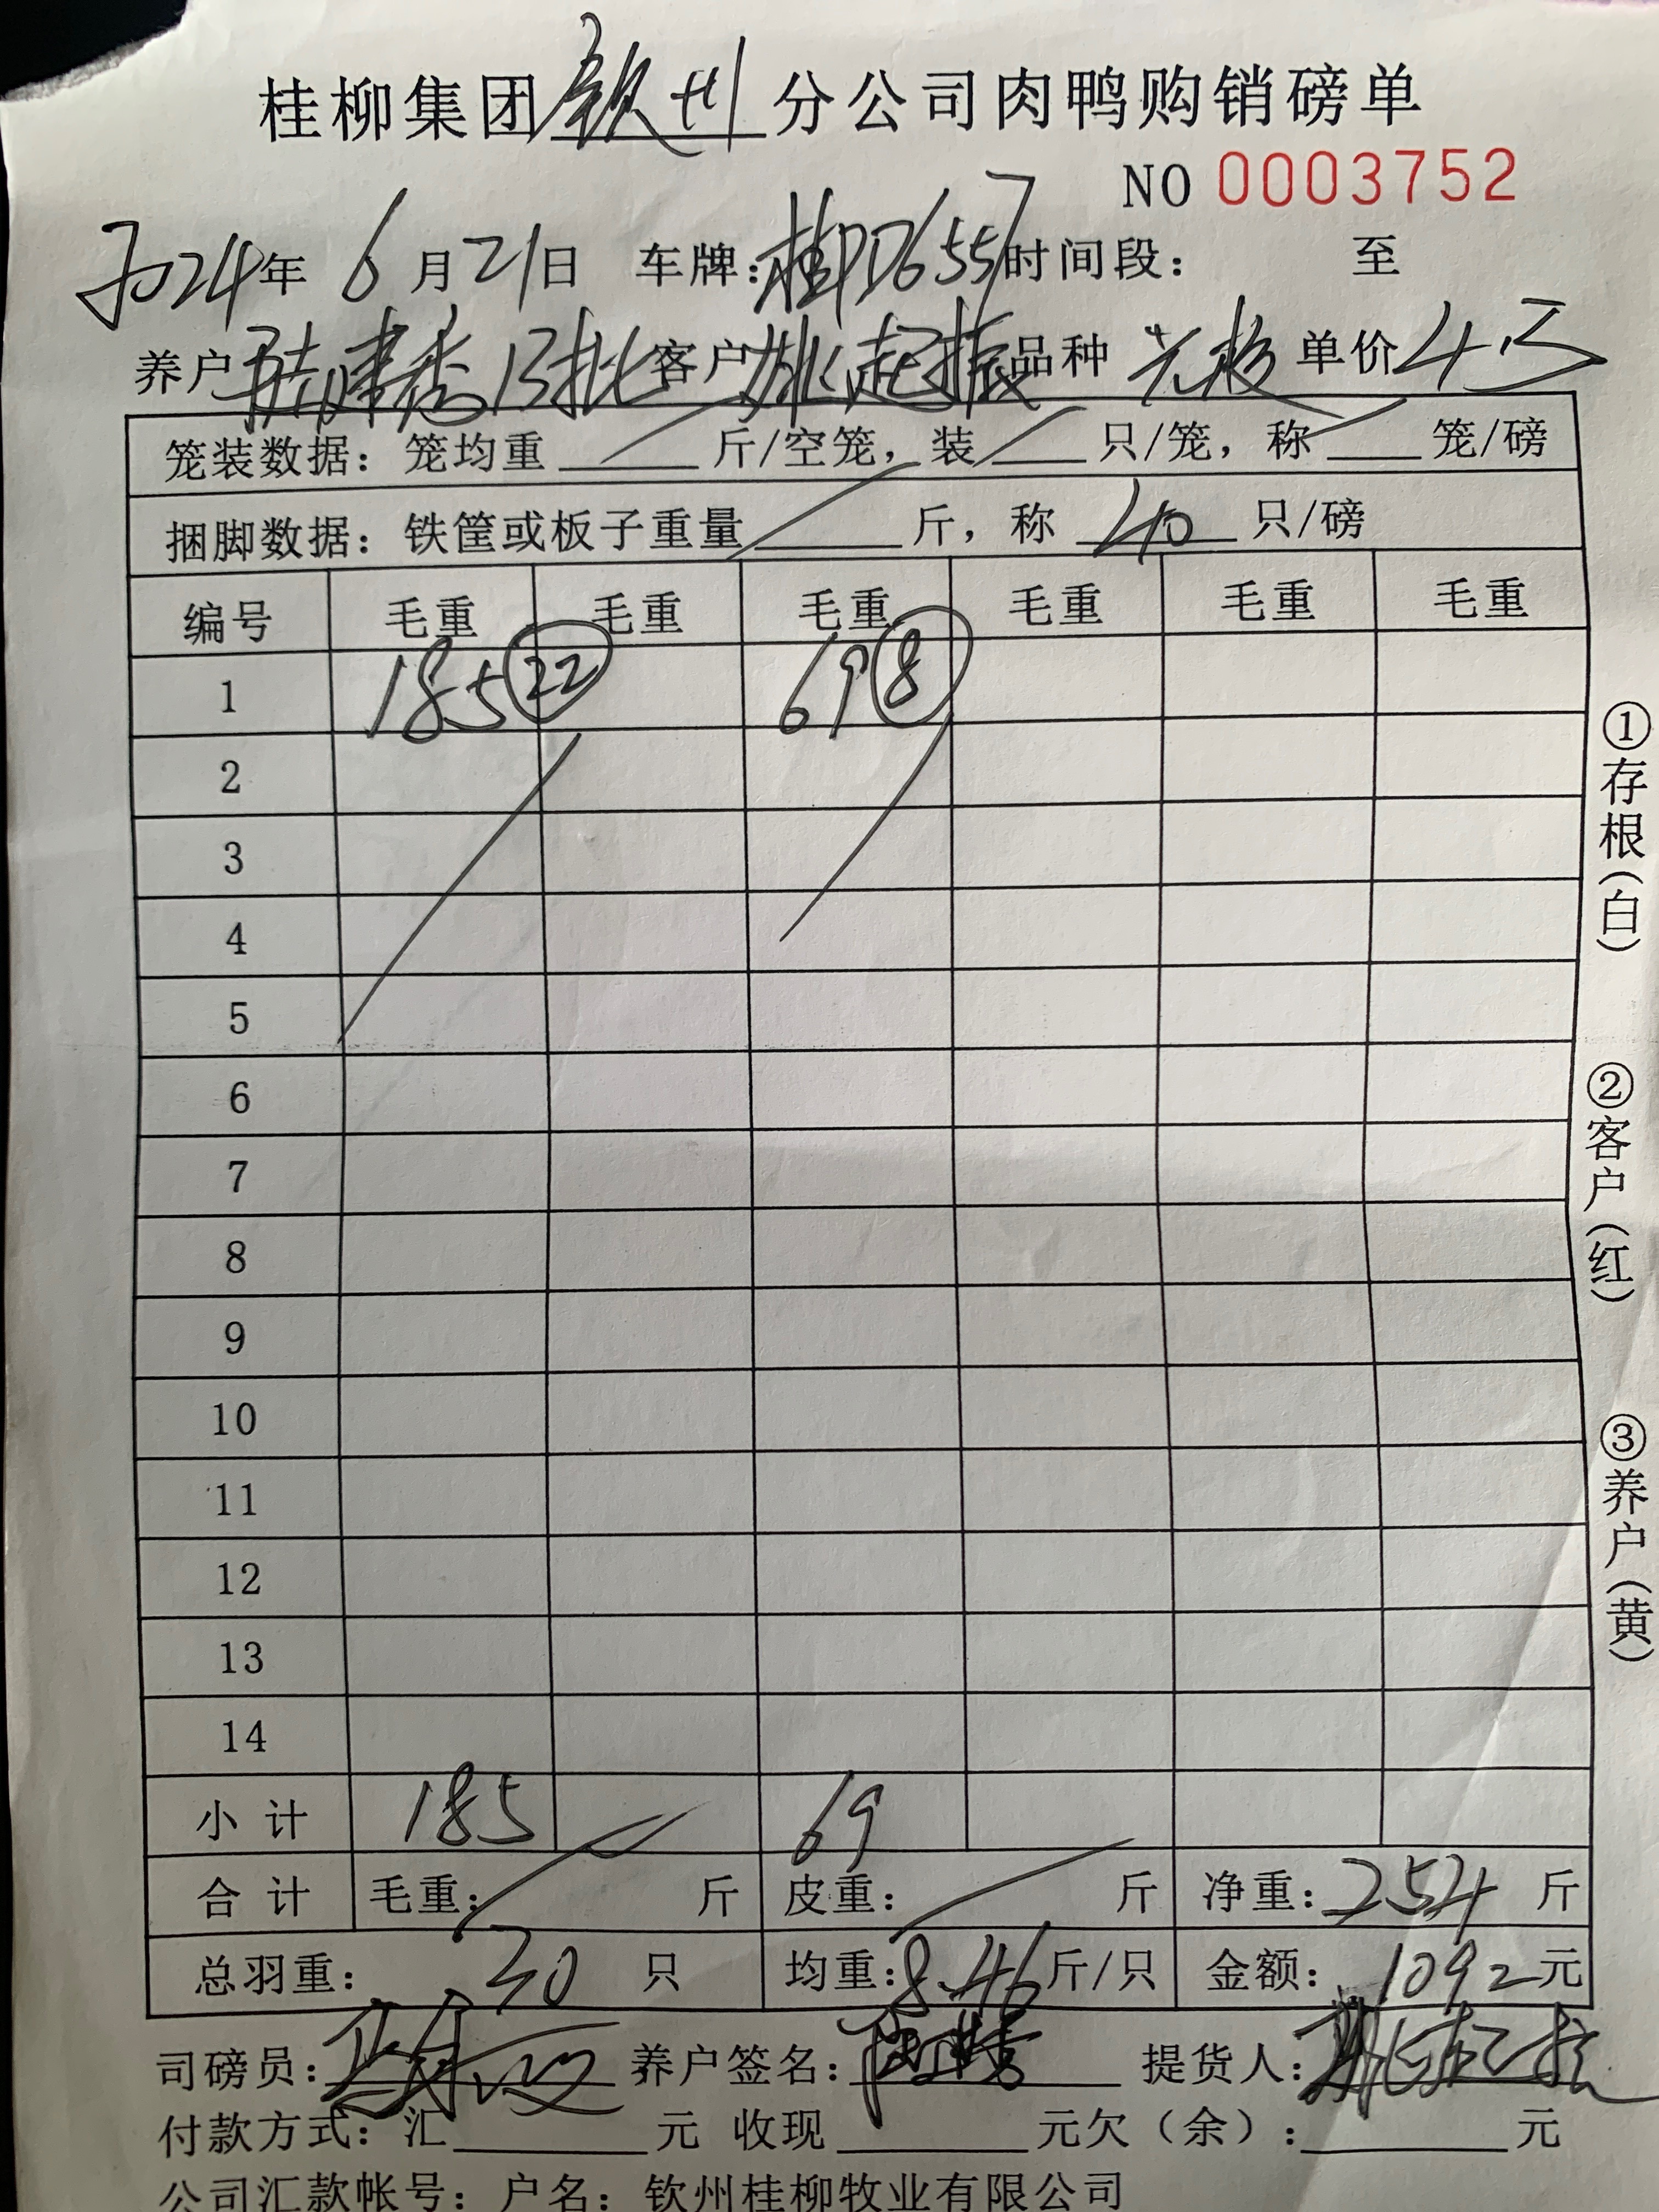 桂柳集团钦州分公司肉鸭购销磅单
NO 0003752
2024年 6月21日 车牌：桂PD6557时间段： 至
养户 陆建秀13批 客户 姚起振 品种 单价4.3
笼装数据：笼均重 斤/空笼，装 只/笼，称 笼/磅
捆脚数据：铁筐或板子重量 斤，称 40 只/磅
编号 毛重 毛重 毛重 毛重 毛重 毛重
1 185 22 69 8
2
3
4
5
6
7
8
9
10
11
12
13
14
小 计 185 69
合 计 毛重： 斤 皮重： 斤 净重：254 斤
总羽重： 30 只 均重：8.46斤/只 金额：1092元
司磅员： 养户签名： 提货人：
付款方式：汇 元 收现 元欠（余）： 元
公司汇款帐号：户名：钦州桂柳牧业有限公司
①存根（白）
②客户（红）
③养户（黄）